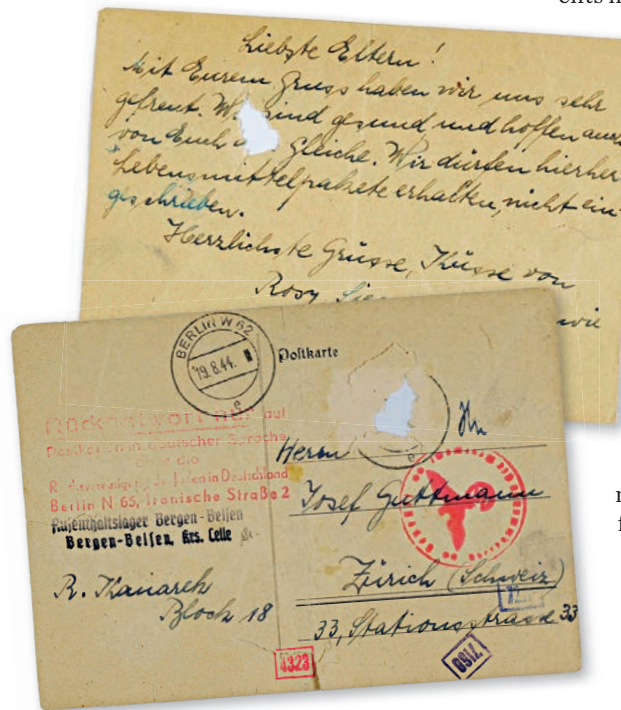 ents
Liebste Eltern!
Mit Eurem Gruss haben wir uns sehr
gefreut. sind gesund und hoffen auch
von Euch Gleiche. Wir dürfen hierher
Lebensmittelpakete erhalten, nicht ein-
geschrieben.
Herzlichste Grüsse, Küsse von
Rosy wie
BERLIN W 62
19.8.44.
Postkarte
Rückantwort nur auf
Postkarten in deutscher Sprache
über die
Reichsvereinigung der Juden in Deutschland
Berlin N 65, Iranische Straße 2
Aufenthaltslager Bergen-Belsen
Bergen-Belsen, Krs. Celle
R. Kanarek
Block 18
Herrn
Josef Guttmann
Zürich (Schweiz)
33, Stationsstrasse 33
4323
7160